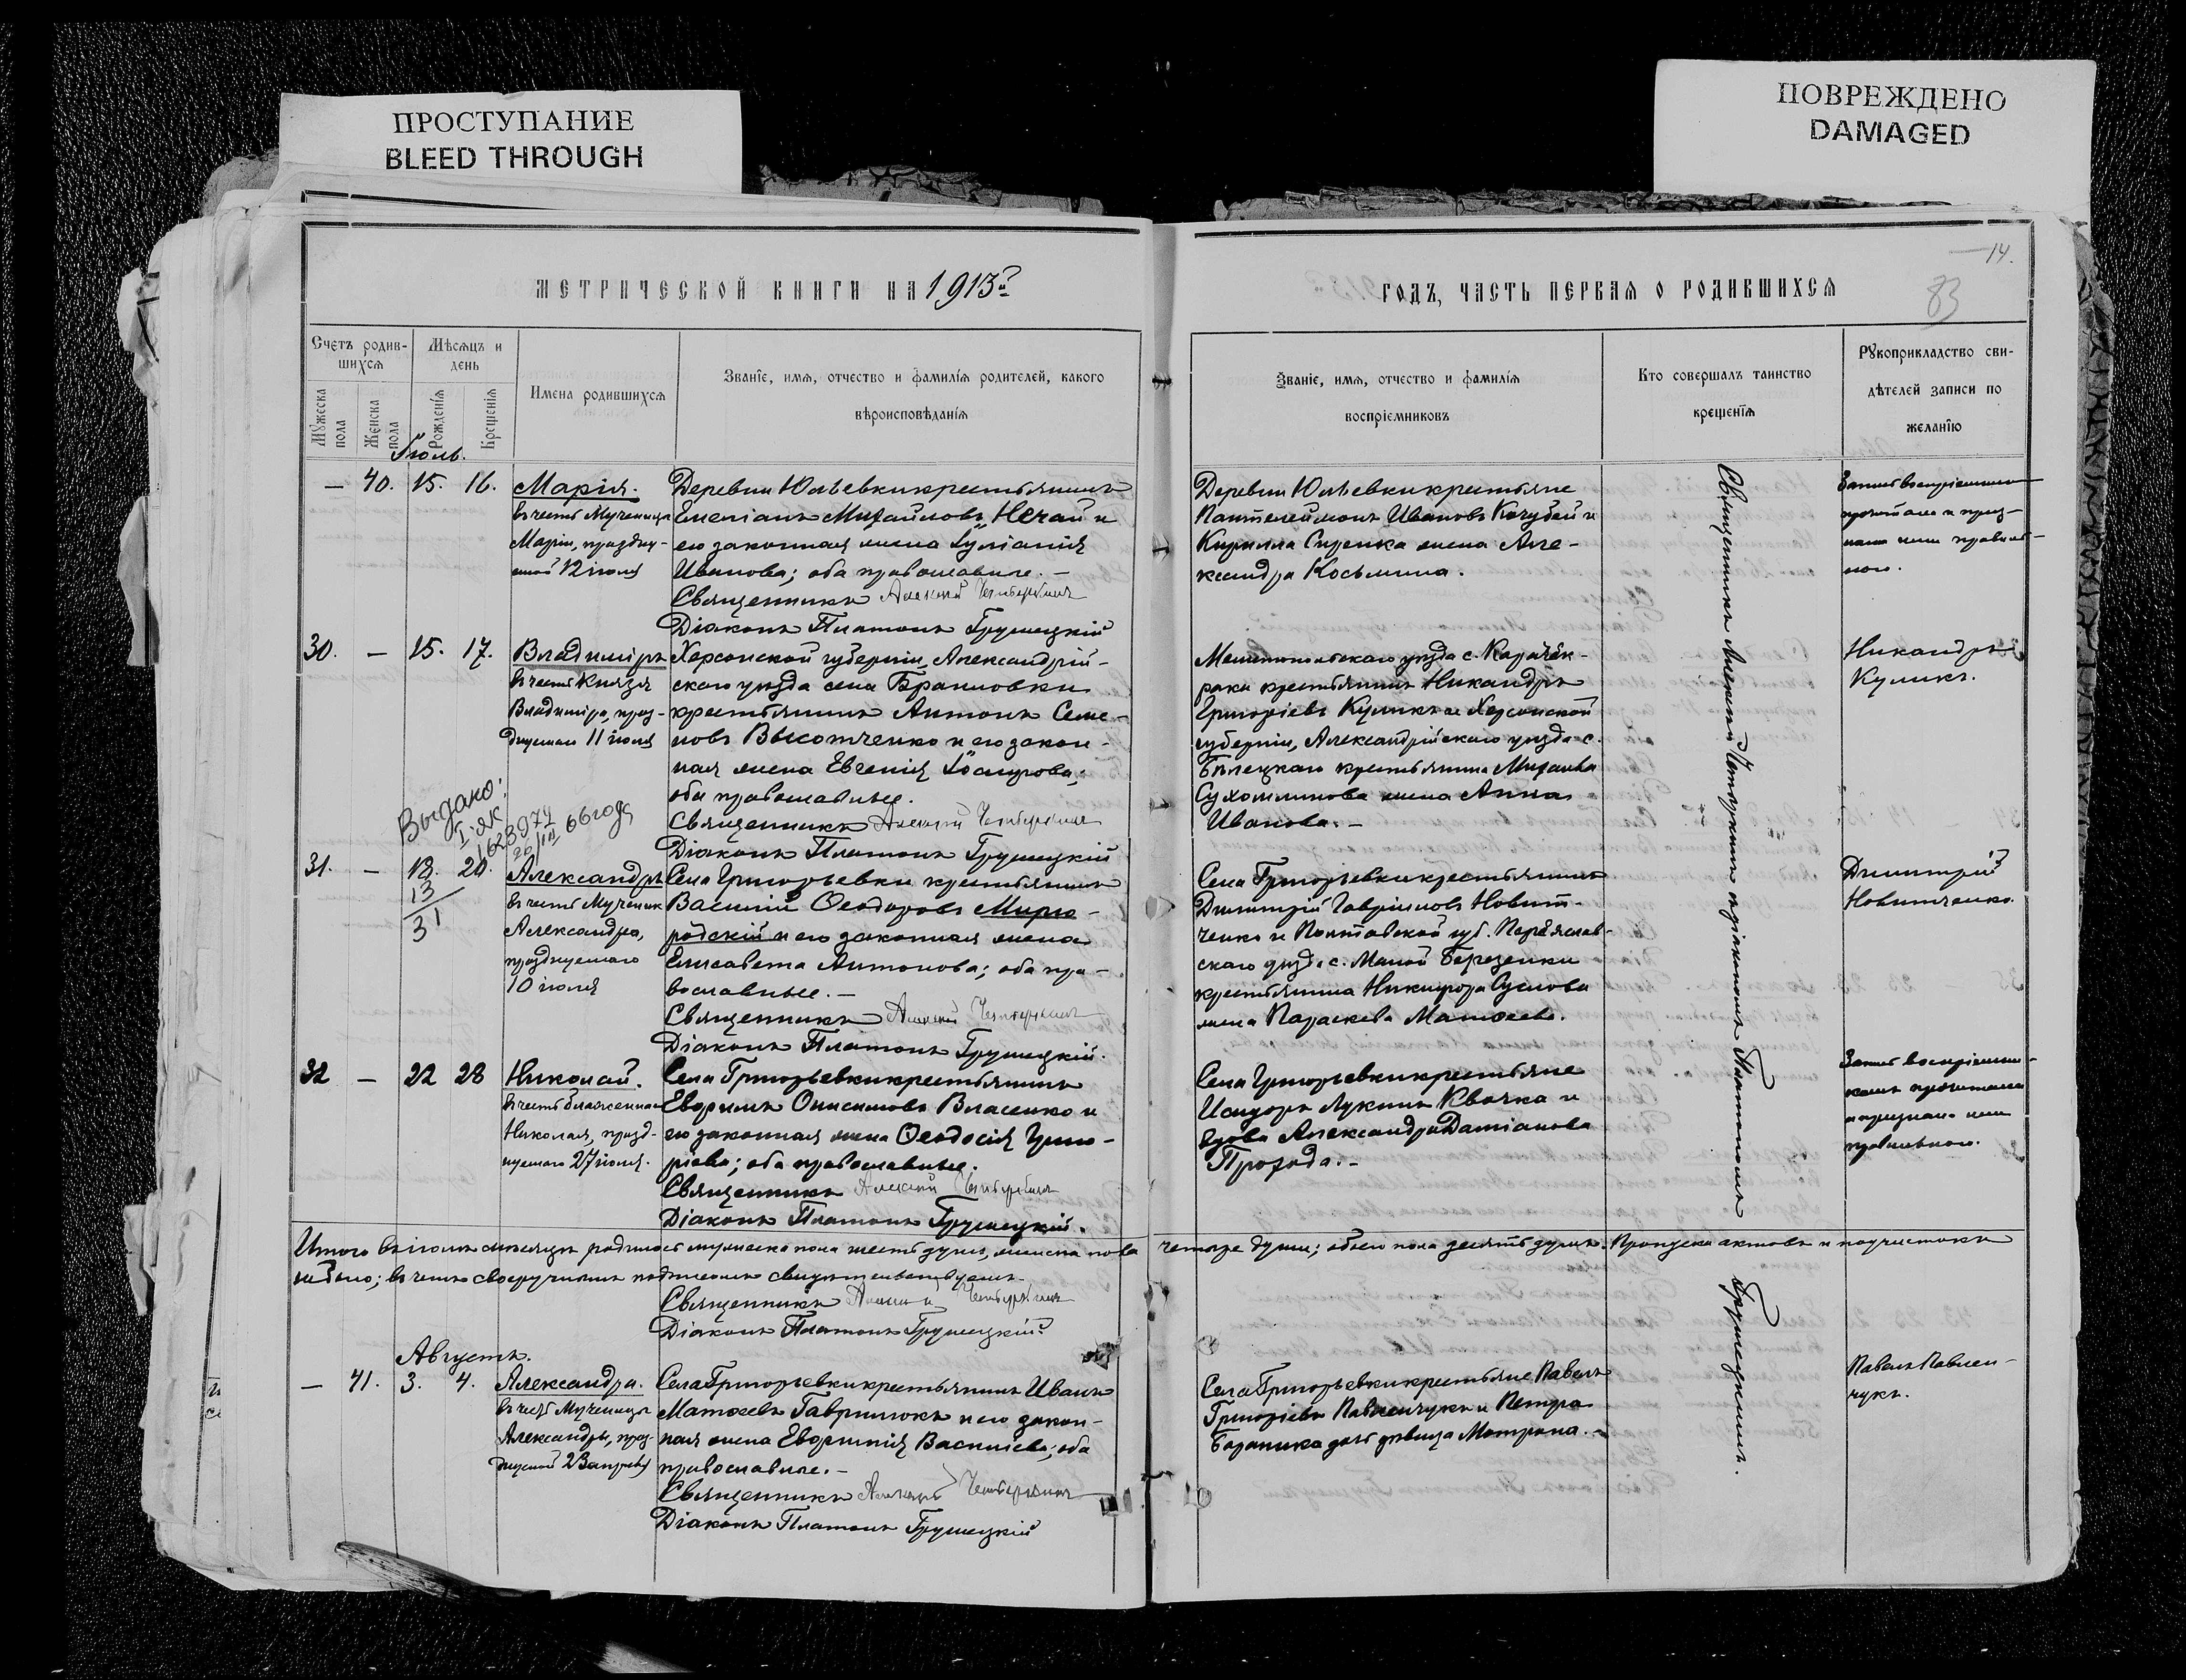 ПРОСТУПАНИЕ
BLEED THROUGH
ПОВРЕЖДЕНО
DAMAGED
14.
83
МЕТРИЧЕСКОЙ КНИГИ НА 1913й
ГОДЪ, ЧАСТЬ ПЕРВАЯ О РОДИВШИХСЯ
Счетъ родив-
шихся
Мѣсяцъ и
день
Мужеска
пола
Женска
пола
Рожденія
Крещенія
Имена родившихся
Званіе, имя, отчество и фамилія родителей, какого
вѣроисповѣданія
Званіе, имя, отчество и фамилія
воспріемниковъ
Кто совершалъ таинство
крещенія
Рукоприкладство сви-
дѣтелей записи по
желанію
Іюль.
— 40. 15. 16.
Марія.
въ честь Мученицы
Маріи, праздну-
емой 12 іюля
Деревни Юльевки крестьянинъ
Емеліанъ Михайловъ Нечай и
его законная жена Іуліанія
Иванова; оба православные. —
Священникъ Алексій
Діаконъ Платонъ Грушецкій
Деревни Юльевки крестьяне
Пантелеймонъ Ивановъ Кочубей и
Кирилла Сиренка жена Але-
ксандра Косьмина.
30. — 15. 17.
Владиміръ
въ честь Князя
Владиміра, праз-
днуемаго 11 іюля
Херсонской губерніи, Александрій-
скаго уѣзда села Браиловки
крестьянинъ Антонъ Семе-
новъ Высотченко и его закон-
ная жена Евгенія
оба православные.
Священникъ Алексій
Діаконъ Платонъ Грушецкій
Мелитопольскаго уѣзда с. Карачек-
рака крестьянинъ Никандръ
Григоріевъ Куликъ и Херсонской
губерніи, Александрійскаго уѣзда с.
крестьянина Михаила
Сухомлинова жена Анна
Иванова. —
Никандръ
Куликъ.
Выдано:
I ЯК
1628974
26/III 66 года
31. — 18. 20.
13
31
Александръ
въ честь Мученик
Александра,
празднуемаго
10 іюля
Села Григорьевки крестьянинъ
Василій Ѳеодоровъ Мирго-
родскій и его законная жена
Елисавета Антонова; оба пра-
вославные. —
Священникъ Алексій
Діаконъ Платонъ Грушецкій.
Села Григорьевки крестьянинъ
Димитрій Гавріиловъ Новит-
ченко и Полтавской губ. Переяслав-
скаго уѣзда с. Малой Березенки
крестьянина Никифора Суслова
жена Параскева Матѳеева.
Димитрій
Новитченко.
32 — 22 28
Николай.
въ честь блаженнаго
Николая, празд-
нуемаго 27 іюля.
Села Григорьевки крестьянинъ
Евфимъ Онисимовъ Власенко и
его законная жена Ѳеодосія Григо-
ріева; оба православные.
Священникъ Алексій
Діаконъ Платонъ Грушецкій.
Села Григорьевки крестьяне
Исидоръ Лукинъ Квочка и
вдова Александра Даміанова
Прохода. —
Священникъ Алексій съ діакономъ Платономъ Грушецкимъ.
Итого въ іюлѣ мѣсяцѣ родилось мужеска пола шесть душъ, женска пола четыре души; обоего пола десять душъ. Пропуска актовъ и подчистокъ
не было; въ чемъ своеручнымъ подписомъ свидѣтельствуемъ.
Священникъ
Діаконъ Платонъ Грушецкій
Августъ.
— 41. 3. 4.
Александра.
въ честь Мученицы
Александры, праз-
днуемой 23 апрѣля
Села Григорьевки крестьянинъ Иванъ
Матѳеевъ Гаврилюкъ и его закон-
ная жена Евфимія Василіева; оба
православные. —
Священникъ Алексій
Діаконъ Платонъ Грушецкій
Села Григорьевки крестьяне Павелъ
Григоріевъ Павленчукъ и Петра
дочь дѣвица Матрона. —
Павелъ Павлен-
чукъ.